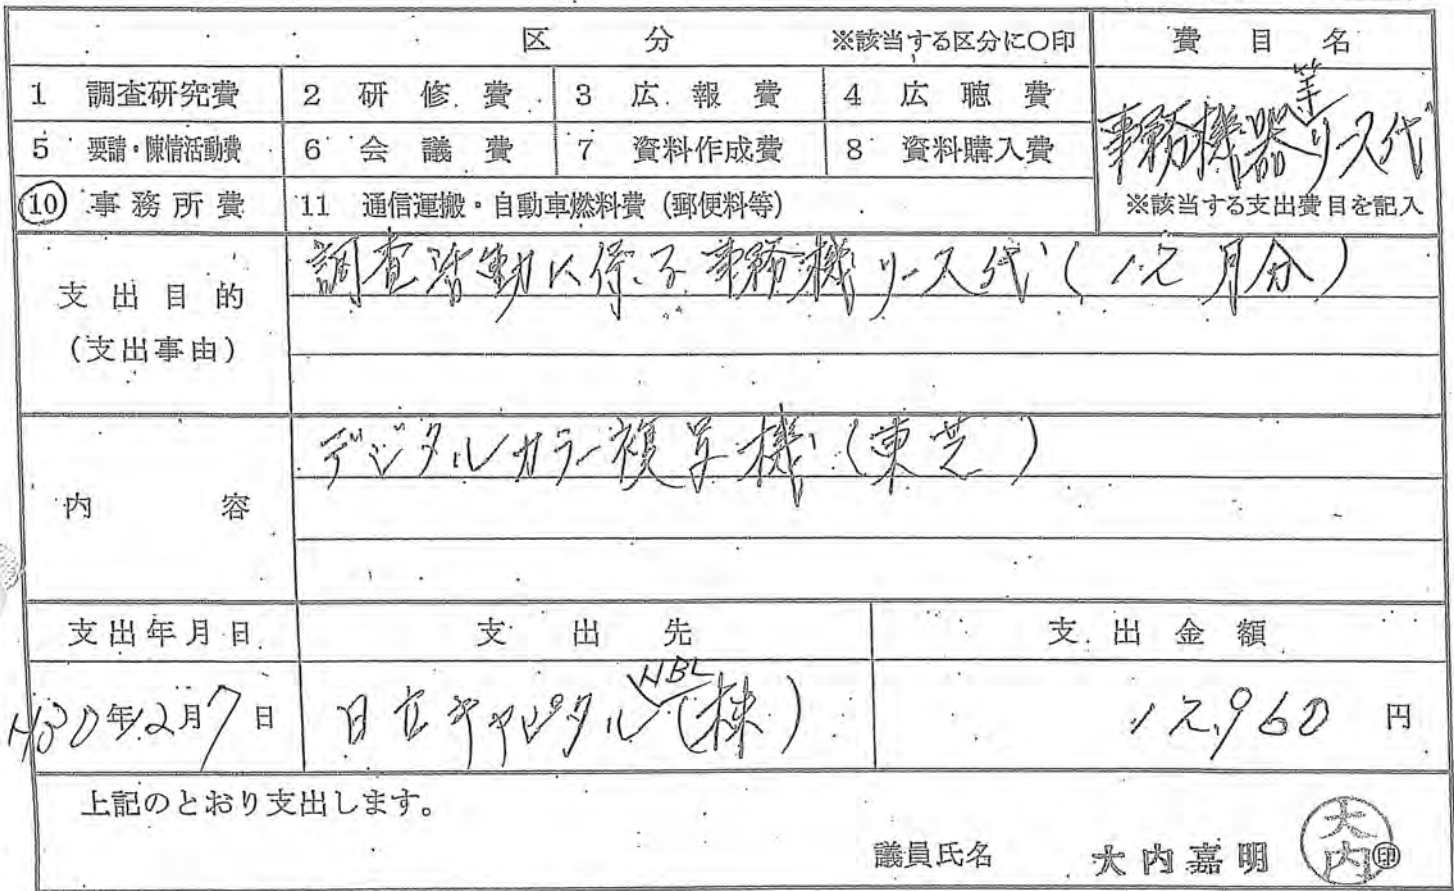 区 分 ※該当する区分に〇印 費 目 名
1 調査研究費 2 研修費 3 広報費 4 広聴費
等
事務機器リース代
5 要請・陳情活動費 6 会議費 7 資料作成費 8 資料購入費
10 事務所費 11 通信運搬・自動車燃料費(郵便料等)
※該当する支出費目を記入
支出目的
(支出事由)
調査活動に係る事務機リース代(12月分)
内 容
デジタルカラー複写機(東芝)
支出年月日 支出先 支出金額
H30年12月7日
日立キャピタルNBL(株)
12,960円
上記のとおり支出します。
議員氏名 大内嘉明 大内 印